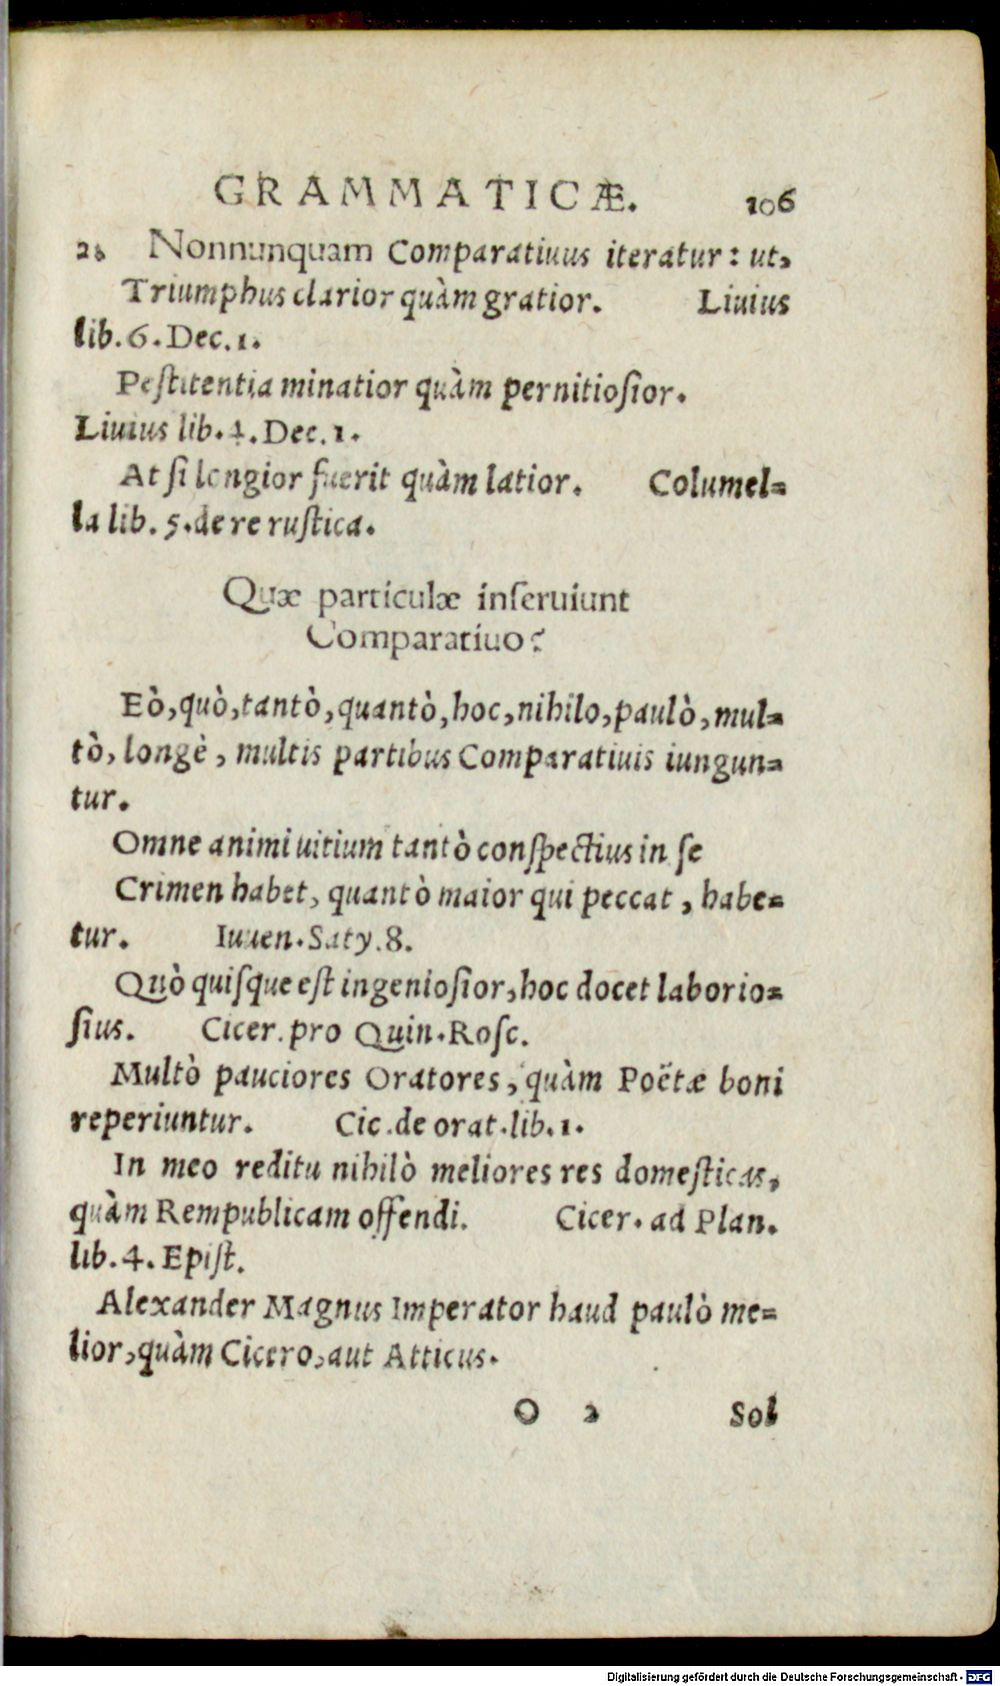 GRAMMATICÆ. 106
2. Nonnunquam Comparatiuus iteratur: ut,
Triumphus clarior quàm gratior. Liuius
lib. 6. Dec. 1.
Pestitentia minatior quàm pernitiosior.
Liuius lib. 4. Dec. 1.
At si longior fuerit quàm latior. Columel=
la lib. 5. de re rustica.
Quæ particulæ inseruiunt
Comparatiuo?
Eò, quò, tantò, quantò, hoc, nihilo, paulò, mul=
tò, longè, multis partibus Comparatiuis iungun=
tur.
Omne animi uitium tantò conspectius in se
Crimen habet, quantò maior qui peccat, habe=
tur. Iuuen. Saty. 8.
Quò quisque est ingeniosior, hoc docet laborio=
sius. Cicer. pro Quin. Rosc.
Multò pauciores Oratores, quàm Poëtæ boni
reperiuntur. Cic. de orat. lib. 1.
In meo reditu nihilò meliores res domesticas,
quàm Rempublicam offendi. Cicer. ad Plan.
lib. 4. Epist.
Alexander Magnus Imperator haud paulò me=
lior, quàm Cicero, aut Atticus.
O 2 Sol
Digitalisierung gefördert durch die Deutsche Forschungsgemeinschaft - DFG